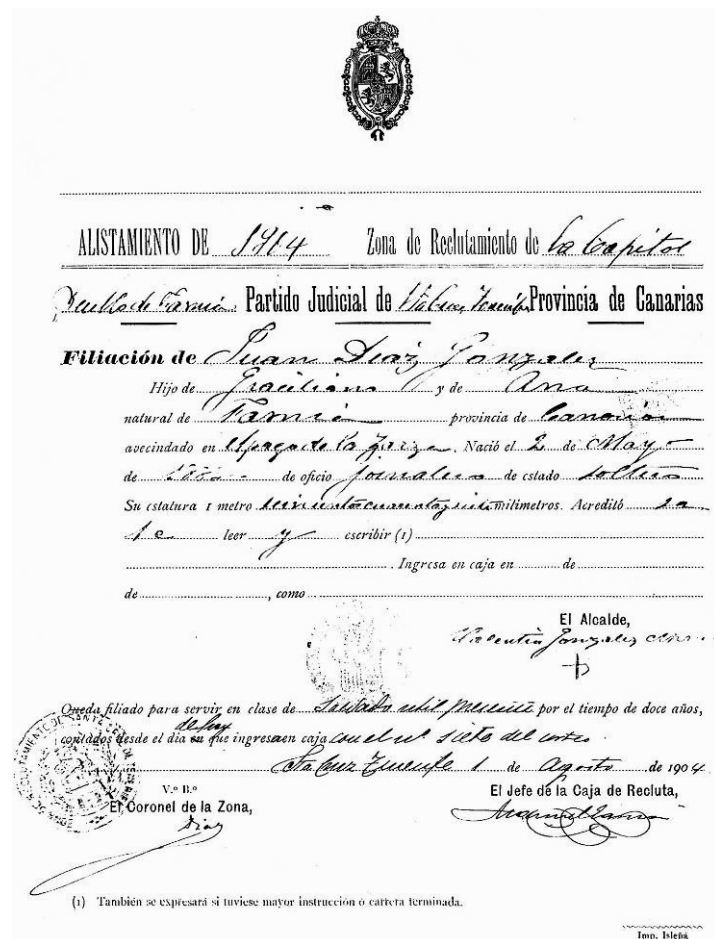 ALISTAMIENTO DE 1904 Zona de Reclutamiento de la Capital
Pueblo de Partido Judicial de Sta Cruz Tenerife Provincia de Canarias
Filiación de Juan Diaz Gonzalez
Hijo de Graciliano y de Ana
natural de provincia de Canarias
avecindado en Nació el 2 de Mayo
de de oficio jornalero de estado soltero
Su estatura 1 metro milimetros. Acreditó
leer y escribir (1)
Ingresa en caja en de
de , como
El Alcalde,
Valentin Gonzalez
Queda filiado para servir en clase de Soldado util por el tiempo de doce años,
de hoy
contados desde el dia en que ingresa en caja con el nº siete del
Sta Cruz Tenerife 1 de Agosto de 1904
V.º B.º El Jefe de la Caja de Recluta,
El Coronel de la Zona,
Diaz
(1) También se expresará si tuviese mayor instrucción ó carrera terminada.
Imp. Isleña